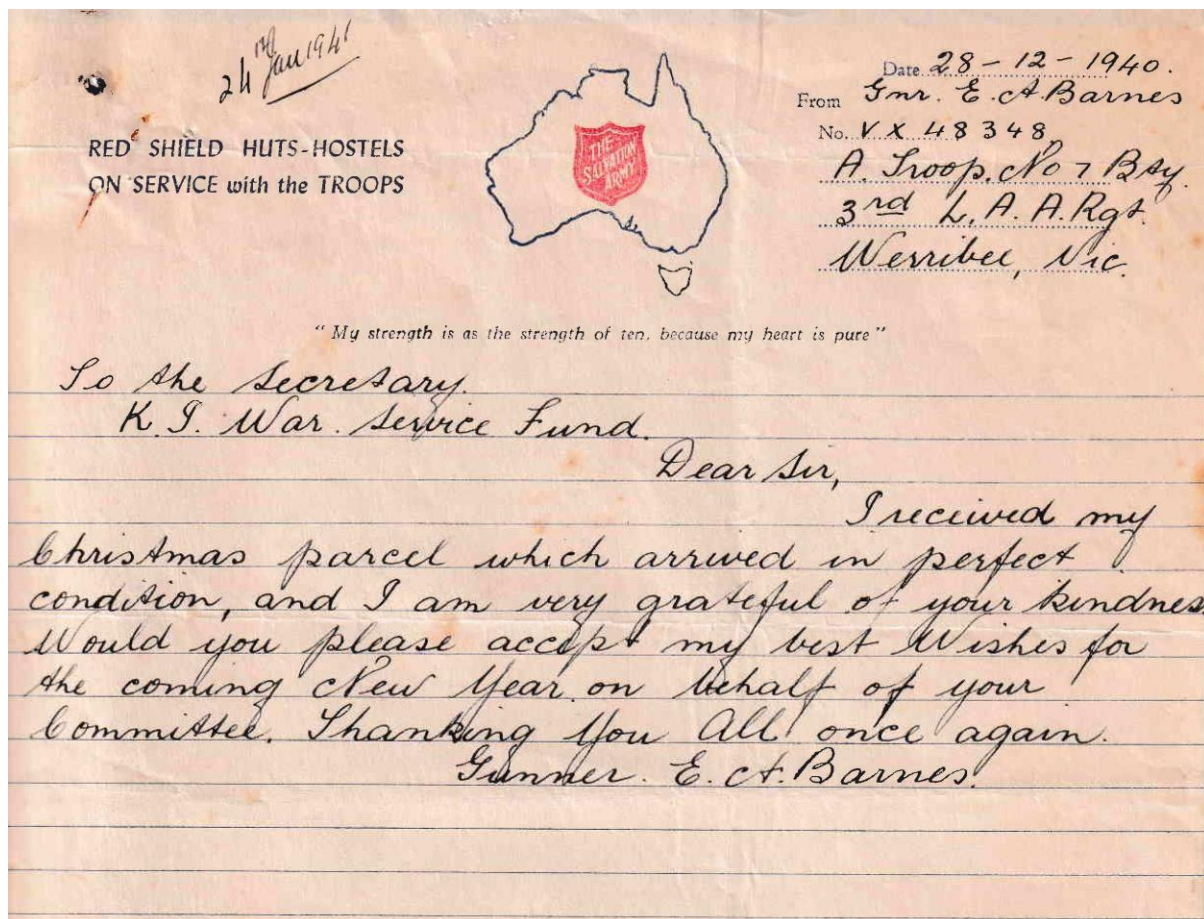 24th Jan 1941
RED SHIELD HUTS-HOSTELS
ON SERVICE with the TROOPS
THE
SALVATION
ARMY
Date 28-12-1940.
From Gnr. E. A. Barnes
No. VX 48348
A. Troop. No 7 Bty.
3rd L. A. A. Rgt.
Werribee, Vic.
"My strength is as the strength of ten, because my heart is pure"
To the Secretary.
K. I. War. Service Fund.
Dear Sir,
I received my
Christmas parcel which arrived in perfect
condition, and I am very grateful of your kindnes
Would you please accept my best Wishes for
the coming New Year on behalf of your
Committee. Thanking You All once again.
Gunner. E. A. Barnes.